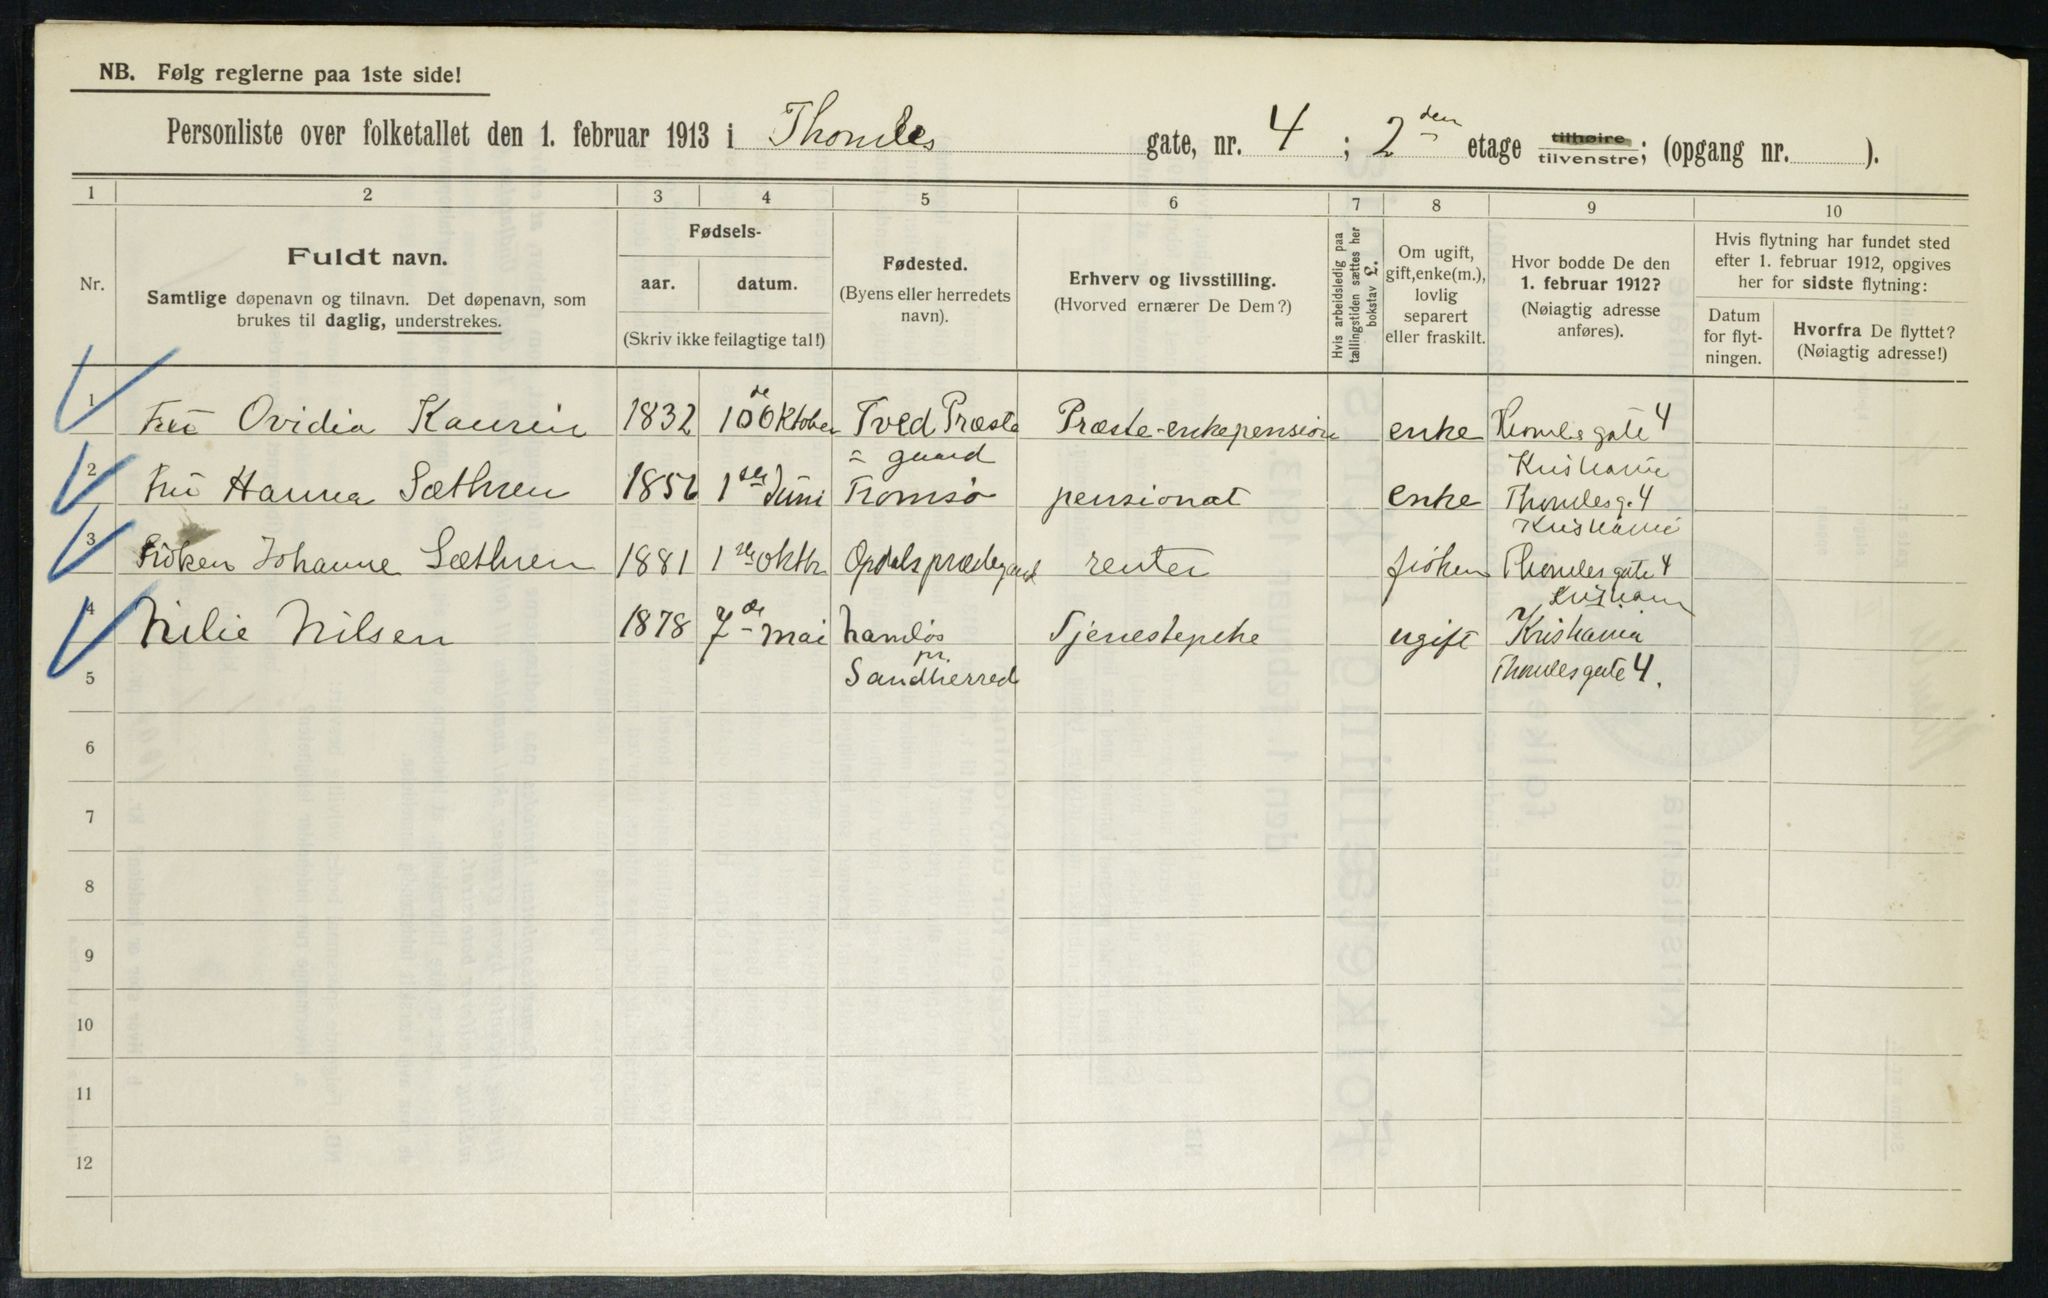 NB. Følg reglerne paa 1ste side!
Personliste over folketallet den 1. februar 1913 i Thomles gate, nr. 4 ; 2 den etage tilhøire tilvenstre; (opgang nr. ).
1 2 3 4 5 6 7 8 9 10
Nr.
Fuldt navn.
Samtlige døpenavn og tilnavn. Det døpenavn, som
brukes til daglig, understrekes.
Fødsels-
aar. datum.
(Skriv ikke feilagtige tal!)
Fødested.
(Byens eller herredets
navn).
Erhverv og livsstilling.
(Hvorved ernærer De Dem?)
Hvis arbeidsledig paa
tællingstiden sættes her
bokstav L.
Om ugift,
gift, enke(m.),
lovlig
separert
eller fraskilt.
Hvor bodde De den
1. februar 1912?
(Nøiagtig adresse
anføres).
Hvis flytning har fundet sted
efter 1. februar 1912, opgives
her for sidste flytning:
Datum
for flyt-
ningen.
Hvorfra De flyttet?
(Nøiagtig adresse!)
1 Fru Ovidia Kaurin 1832 10 de Oktober Tved Præste Præste-enkepension enke Thomles gate 4
= gaard Kristiania
2 Fru Hanna Sæthren 1856 1ste Juni Tromsø pensionat enke Thomlesg. 4
Kristiania
3 Frøken Johanne Sæthren 1881 1ste oktbr Opdals prædegaard renter frøken Thomles gate 4
Kristiania
4 Nilie Nilsen 1878 7de mai namløs Tjenestepike ugift Kristiania
pr.
5 Sandherred Thomlesgate 4.
6
7
8
9
10
11
12